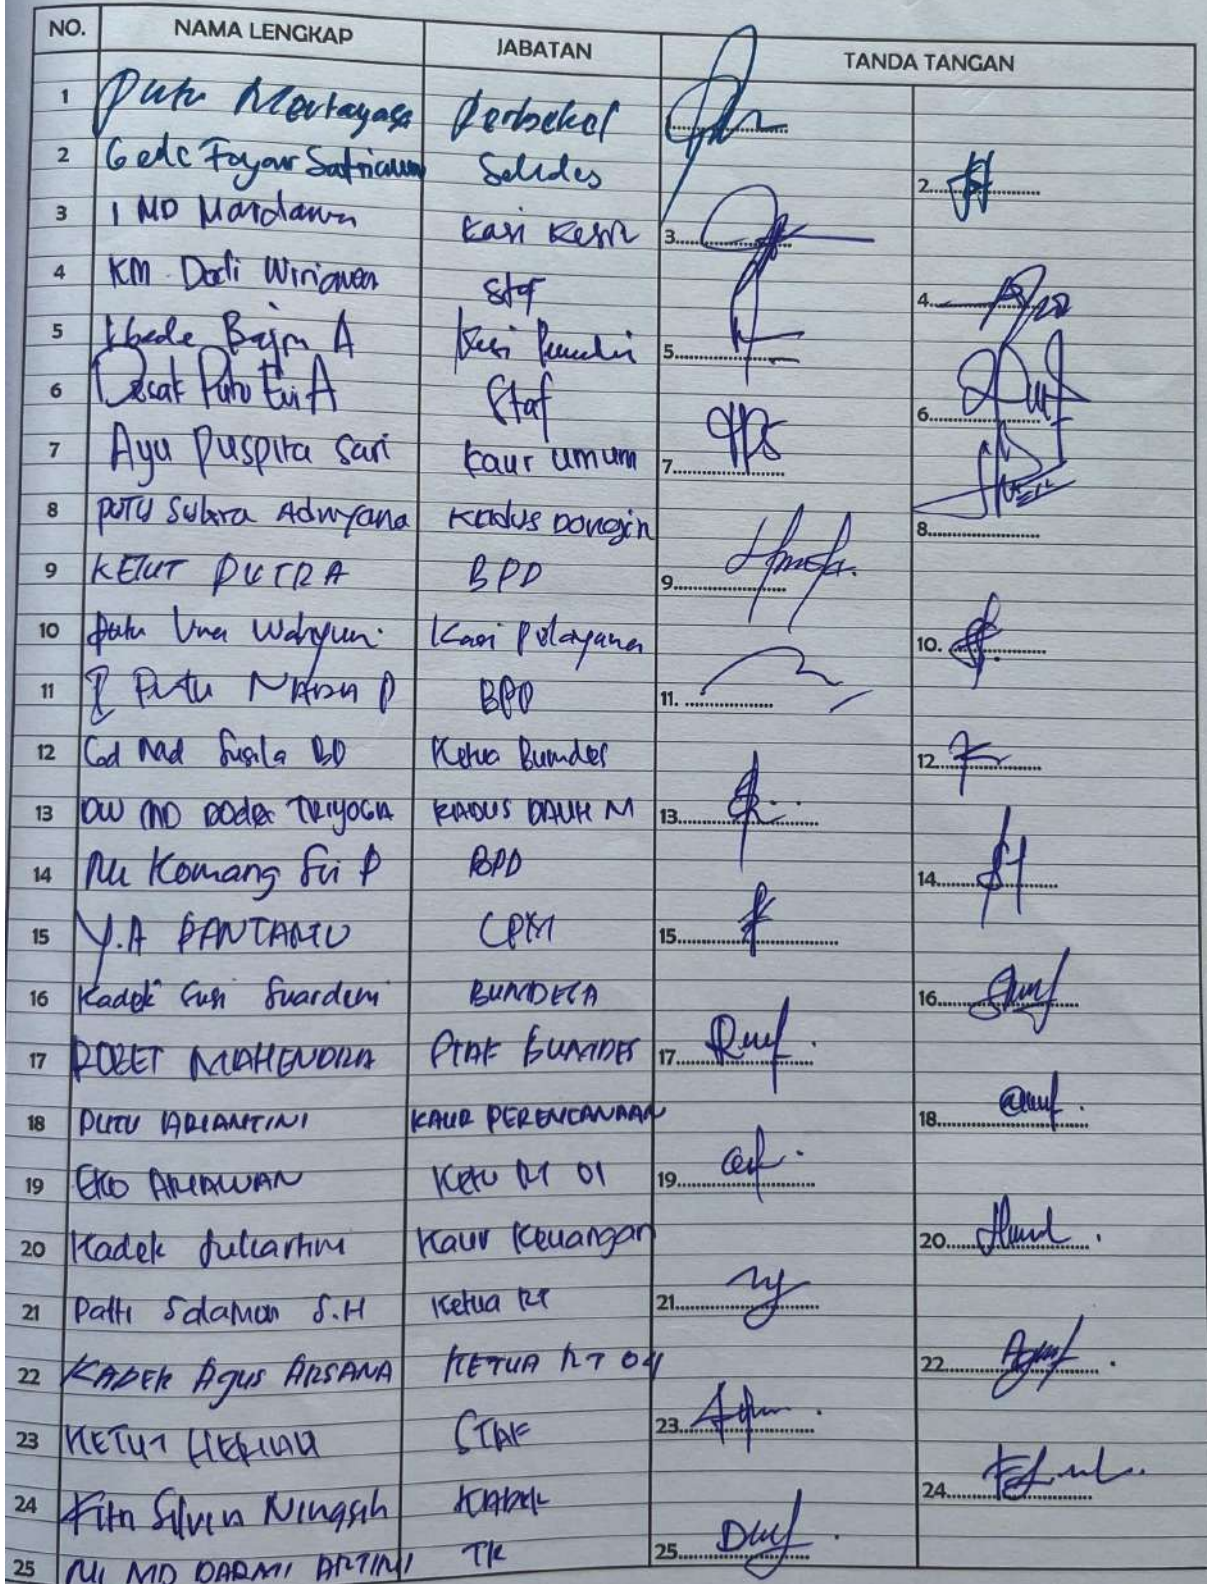 NO. NAMA LENGKAP JABATAN TANDA TANGAN
1 Putu Mertayasa Perbekel
2 Gede Fajar Satriawan Sekdes 2.
3 I MD Mardawa Kasi Kesra 3.
4 KM. Dodi Wiriawan Staf 4.
5 A 5.
6 Desak Putu Evi A Staf 6.
7 Ayu Puspita Sari Kaur Umum 7.
8 PUTU Subara Adnyana Kadus Dongin 8.
9 KETUT PUTRA BPD 9.
10 Putu Wahyuni Kasi Pelayanan 10.
11 I Putu P BPD 11.
12 Gd Mad Susila BD Ketua Bumdes 12
13 DW MD DODEK TRIYOGA KADUS DAUH M 13.
14 Ni Komang Sri P BPD 14.
15 Y.A CPM 15.
16 Kadek Susi Suardeni BUMDESA 16.
17 ROBET MAHENDRA STAF BUMDES 17.
18 PUTU ARIANTINI KAUR PERENCANAAN 18.
19 EKO ARIAWAN Ketu RT 01 19.
20 Kadek Juliartini Kaur Keuangan 20.
21 Patti Salaman S.H Ketua RT 21.
22 KADEK Agus ARSANA KETUA RT 04 22.
23 KETUT STAF 23.
24 Silvia Ningsih 24.
25 NI MD DARMI ARTINI TK 25.